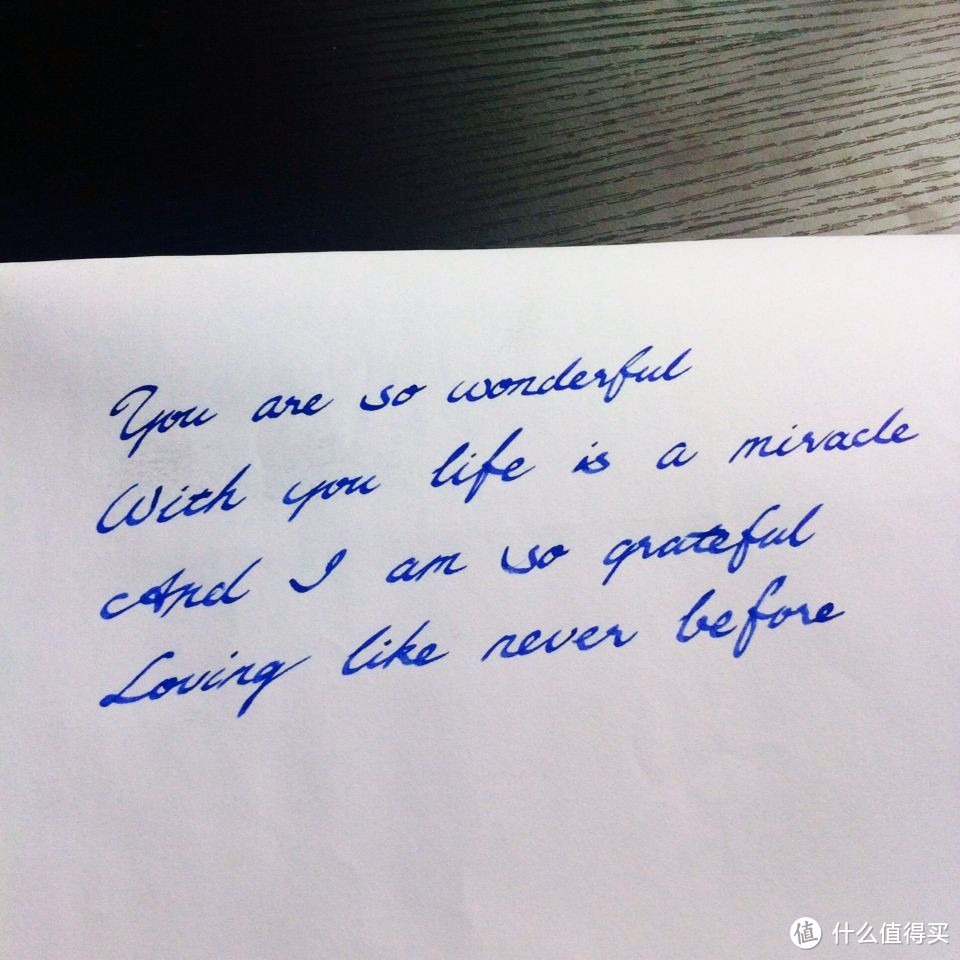 You are so wonderful
With you life is a miracle
And I am so grateful
Loving like never before
值 什么值得买